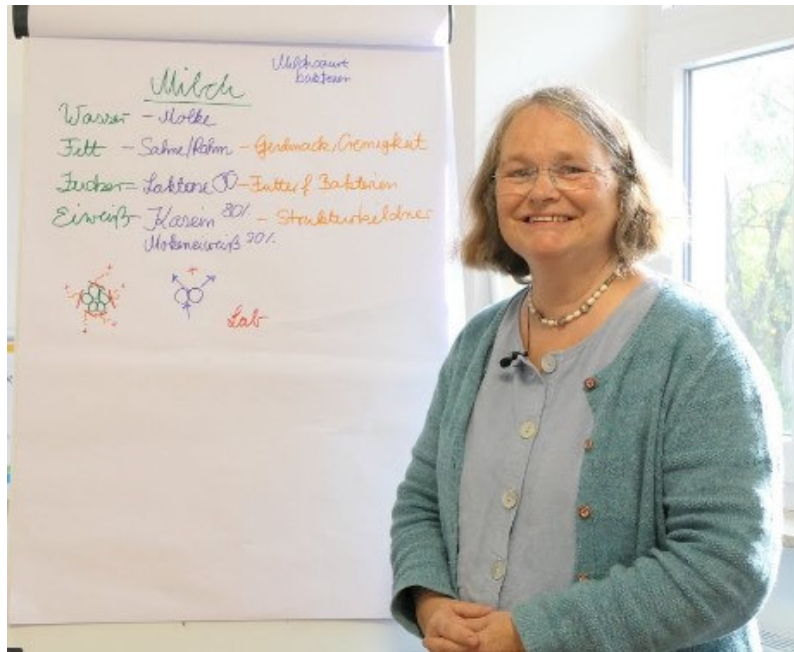 Milch
Milchsäure
bakterien
Wasser - Molke
Fett - Sahne/Rahm - Geschmack, Cremigkeit
Zucker = Laktose - Futter f Bakterien
Eiweiß - Kasein 80% - Strukturbildner
Molkeneiweiß 20%
Lab